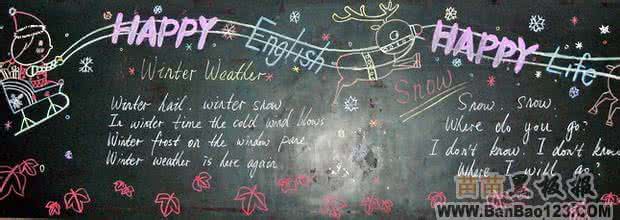 HAPPY English
Winter Weather
Winter hail, winter snow,
In winter time the cold wind blows
Winter frost on the window pane
Winter weather is here again.
HAPPY Life
Snow
Snow, Snow,
Where do you go?
I don't know, I don't know
Where I will go?
苗苗黑板报
www.BanBao123.com